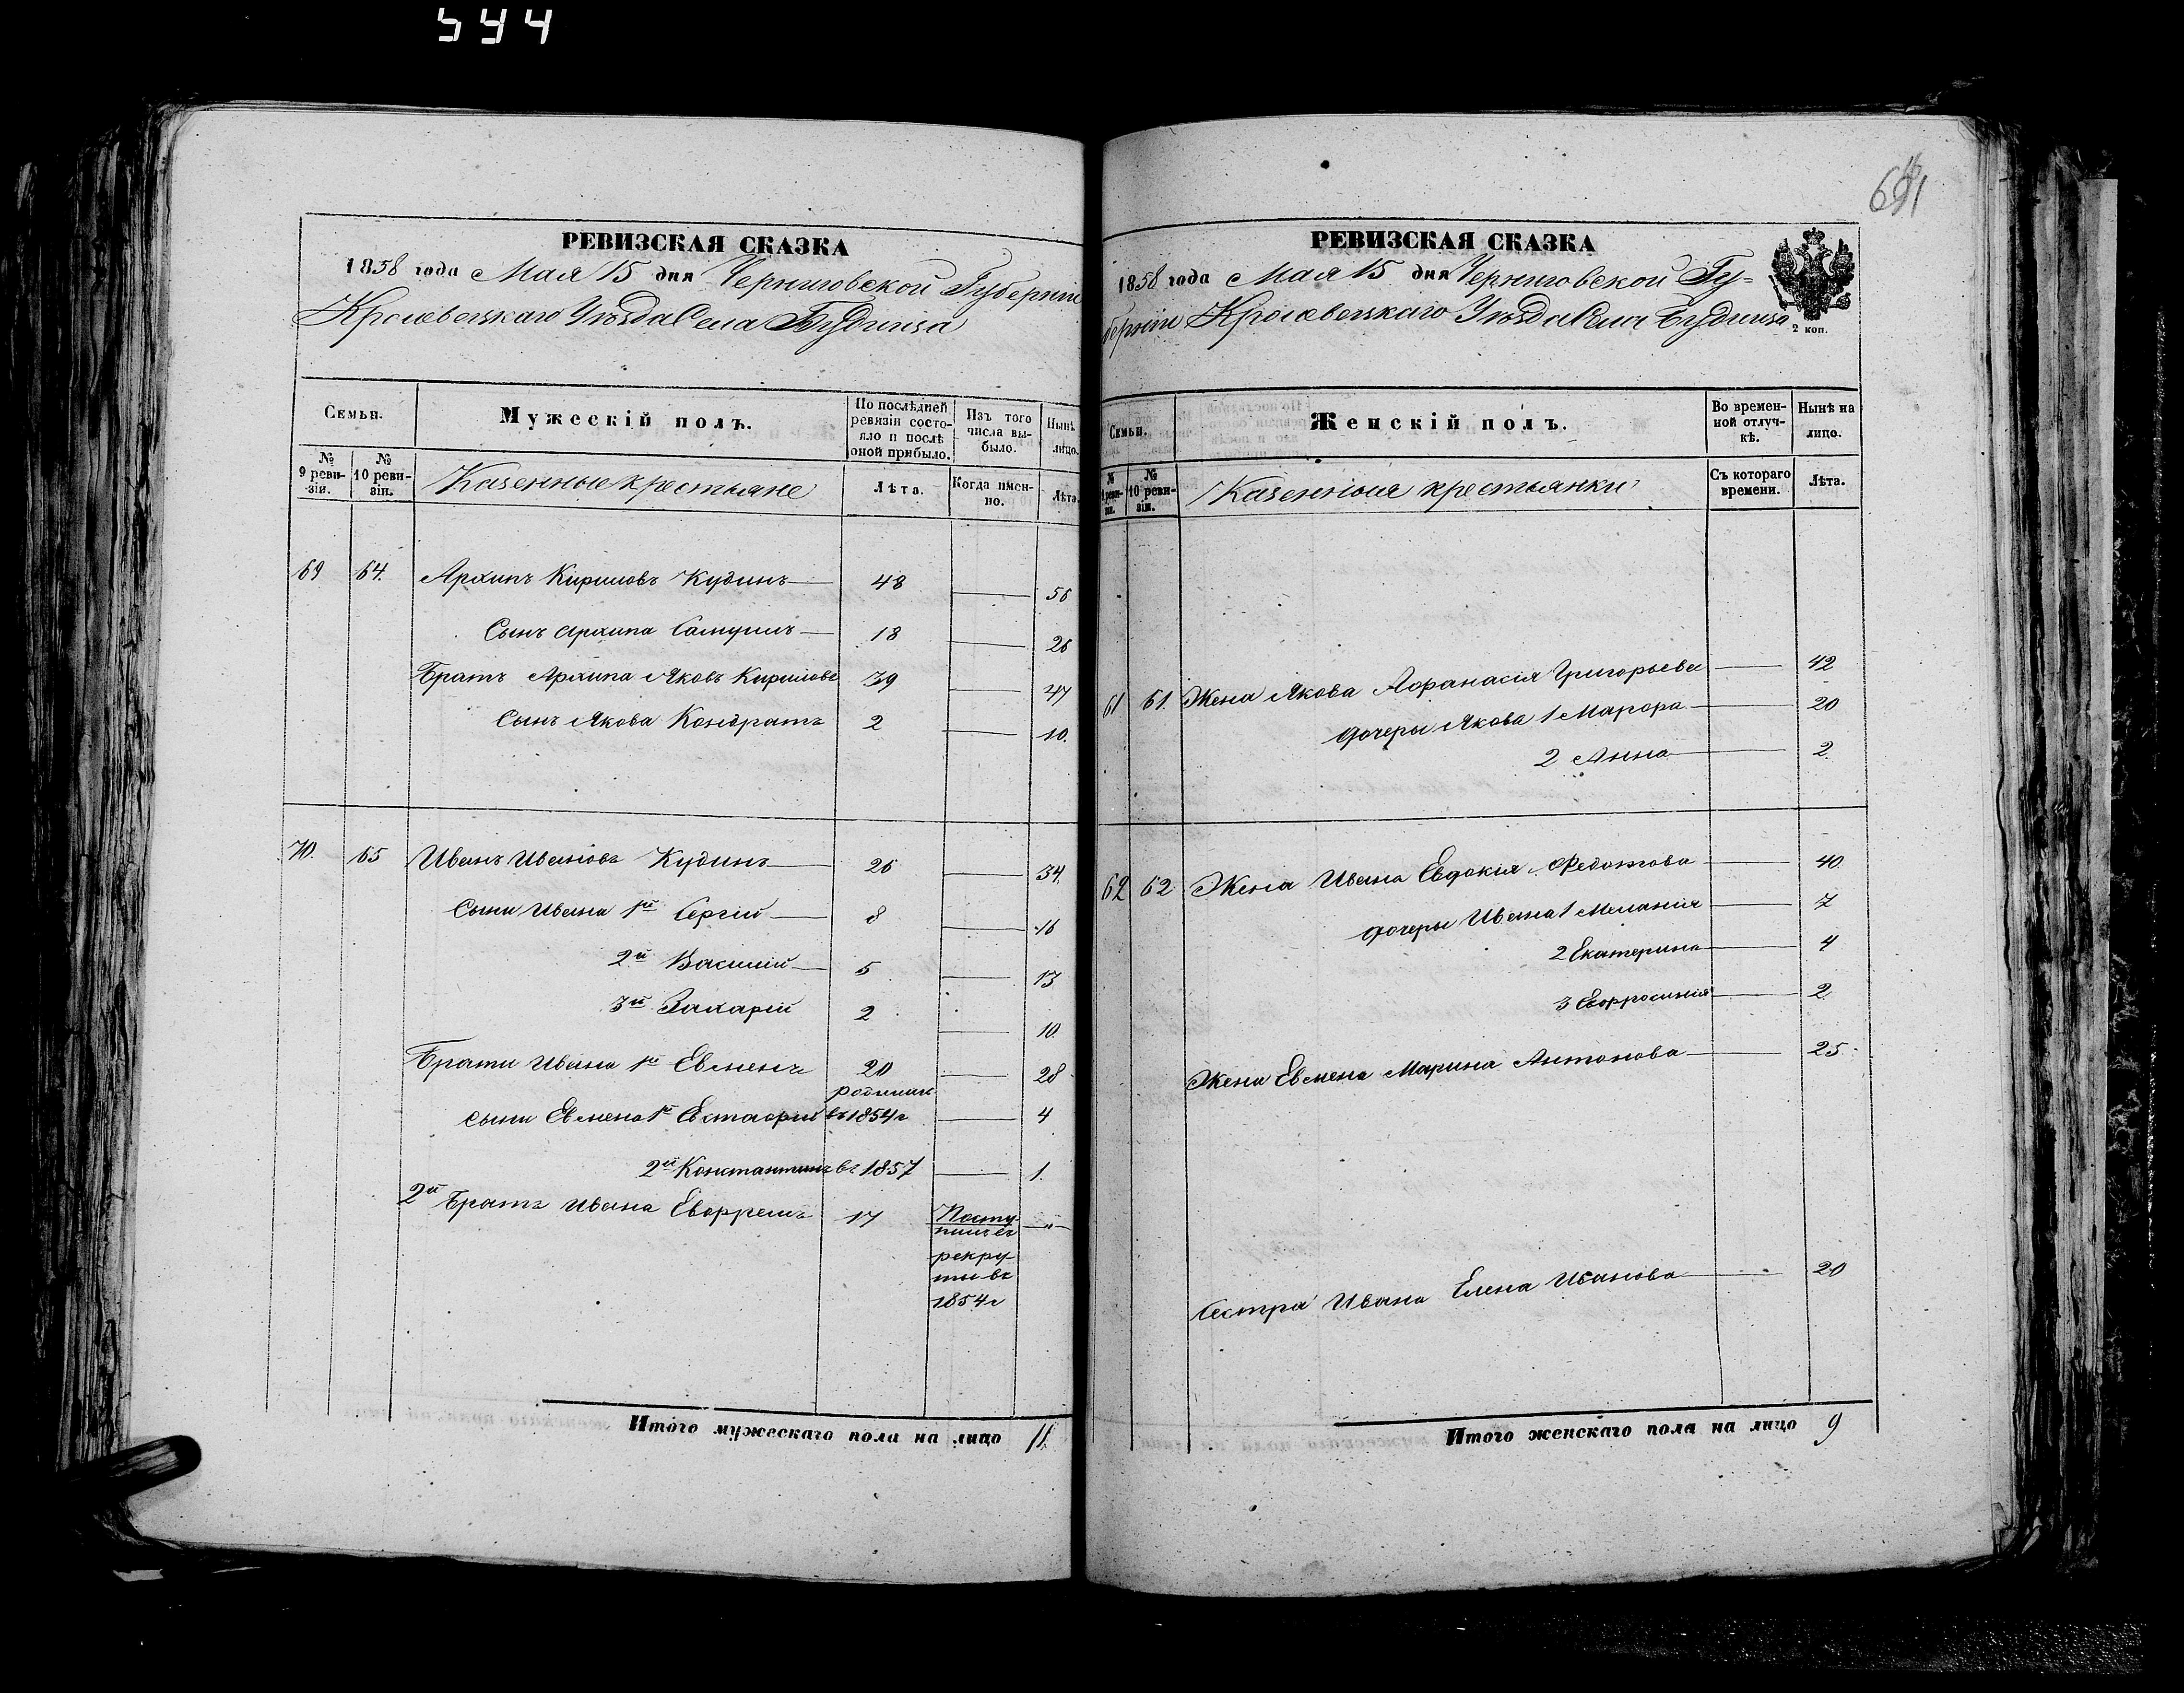 544
РЕВИЗСКАЯ СКАЗКА
1858 года Мая 15 дня Черниговской Губерніи
Кролевецкаго Уѣзда Села Будищa
Семьи.
Мужескій полъ.
По послѣдней ревизіи состояло и послѣ оной прибыло.
Изъ того числа выбыло.
Нынѣ на лицо.
№ 9 ревизіи.
№ 10 ревизіи.
Казенные крестьяне
Лѣта.
Когда именно.
Лѣта
69 64. Архипъ Кириловъ Кудинъ 48 — 56
Сынъ Архипа Самуилъ 18 — 26
Братъ Архипа Яковъ Кириловъ 39 — 47
Сынъ Якова Кондратъ 2 — 10.
70. 65 Иванъ Ивановъ Кудинъ 26 — 34.
Сыни Ивана 1й Сергій 8 — 16
2й Василій 5 — 13
3й Захарій 2 — 10.
Брати Ивана 1й Евменъ 20 — 28
родились
Сыни Евмена 1й Евстафій въ 1854 г — 4
2й Константинъ въ 1857 — 1.
2й Братъ Ивана Евфремъ 17 Посту- — „ —
пилъ въ
рекру-
ты въ
1854 г
Итого мужескаго пола на лицо 11.
РЕВИЗСКАЯ СКАЗКА
1858 года Мая 15 дня Черниговской Гу-
берніи Кролевецкаго Уѣзда Села Будища
2 коп.
Семьи.
Женскій полъ.
Во временной отлучкѣ.
Нынѣ на лицо.
№ 10 ревизіи.
Казенныя крестьянки
Съ котораго времени.
Лѣта.
61 61. Жена Якова Афанасія Григорьева — 42
Дочеры Якова 1 Марфа — 20
2 Анна — 2.
62 62 Жена Ивана Евдокія Федотова — 40
Дочеры Ивана 1 Меланія — 7
2 Екатерина — 4
3 Евфросинія — 2.
Жена Евмена Марина Антонова — 25
Сестра Ивана Елена Иванова — 20
Итого женскаго пола на лицо 9